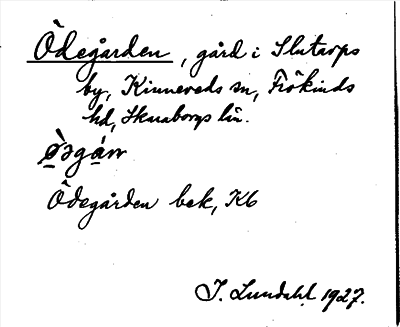 Ödegården, gård i Slutarps
by, Kinneveds sn, Frökinds
hd, Skaraborgs län.
Ödegården bek, Kb
I. Lundahl 1927.